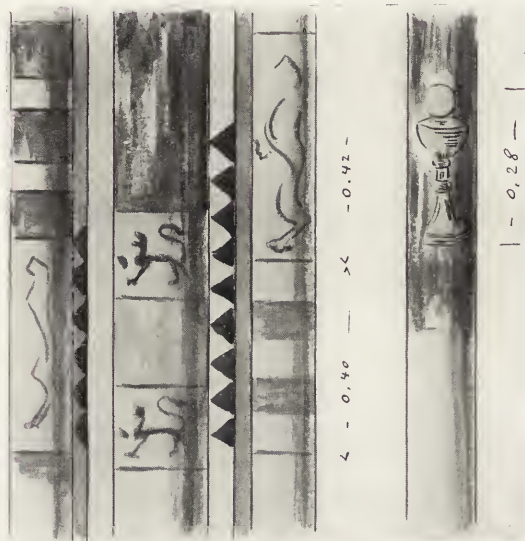 < - 0.40 — >< - 0.42 -
|- 0,28 — |